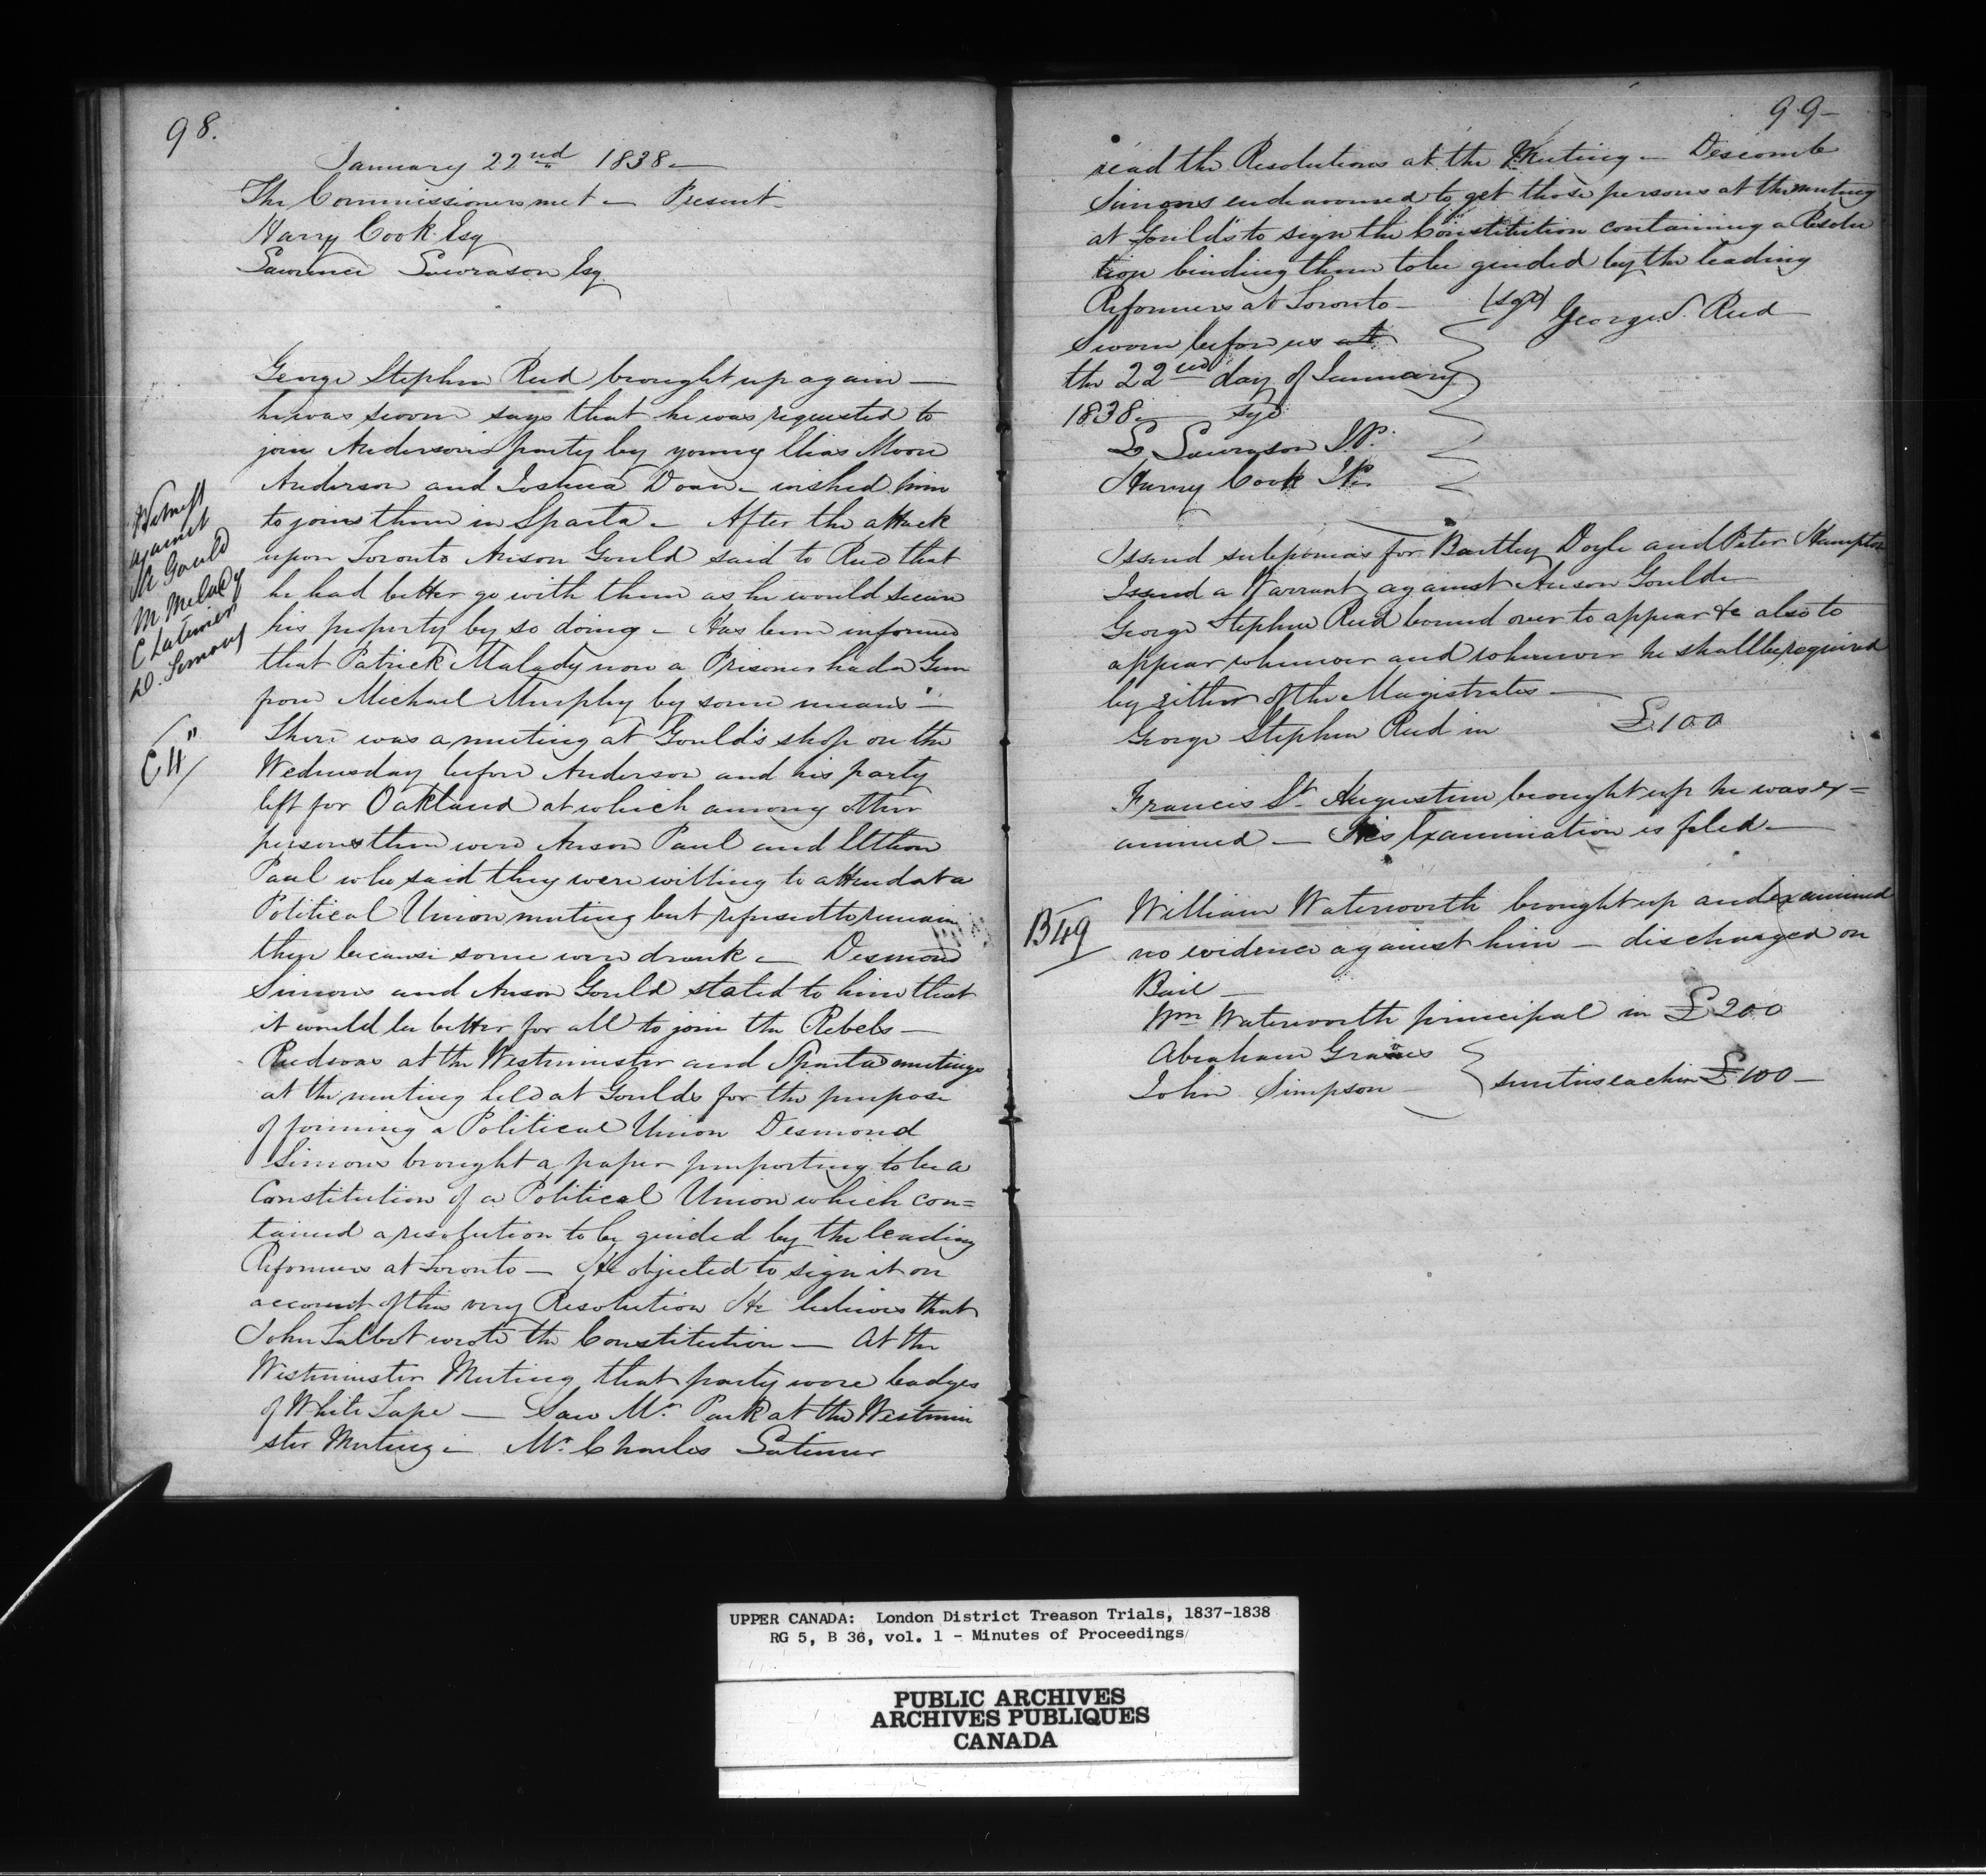 98.
January 22nd 1838 —
The Commissioners met — Present
Harry Cook Esq
Lawrence Lawrason Esq
George Stephen Reed brought up again —
he was sworn says that he was requested to
join Anderson's party by young Elias Moore
Anderson and Joshua Doan — wished him
to join them in Sparta — After the attack
upon Toronto Anson Gould said to Reed that
he had better go with them as he would secure
his property by so doing — Has been informed
that Patrick Malady now a Prisoner had a Gun
from Michael Murphy by some means —
There was a meeting at Gould's shop on the
Wednesday before Anderson and his party
left for Oakland at which among other
persons there were Anson Paul and
Paul who said they were willing to attend at a
Political Union meeting but refused to remain
there because some were drunk — Desmond
Simons and Anson Gould stated to him that
it would be better for all to join the Rebels —
Reed was at the Westminster and Sparta meetings
at the meeting held at Goulds for the purpose
of forming a Political Union Desmond
Simons brought a paper purporting to be a
Constitution of a Political Union which con=
tained a resolution to be guided by the leading
Reformers at Toronto — He objected to sign it on
account of this very Resolution He believes that
John Talbot wrote the Constitution — At the
Westminster Meeting that party wore badges
of White Tape — Saw Mr Park at the Westmin
ster Meeting — Mr Charles Latimer
Witness
against
A Gould
M Melady
C Latimer
D. Simons
C 4"
99 —
read the Resolutions at the Meeting — Descomb
Simons endeavoured to get those persons at the meeting
at Gould's to sign the Constitution containing a Resolu
tion binding them to be guided by the leading
Reformers at Toronto — (sgd) George S. Reed
Sworn before us at
the 22nd day of January
1838 — sgd
L Lawrason J.P.
Harry Cook J.P.
Issued subpoenas for Bartley Doyle and Peter Hampton
Issued a Warrant against Anson Gould —
George Stephen Reed bound over to appear &c also to
appear whenever and wherever he shall be required
by either of the Magistrates —
George Stephen Reed in £100
Francis St Augustine brought up he was ex=
amined — His Examination is filed —
B49
William Waterworth brought up and examined
no evidence against him — discharged on
Bail —
Wm Waterworth principal in £200
Abraham Graves
John Simpson } sureties each in £100 —
UPPER CANADA: London District Treason Trials, 1837-1838
RG 5, B 36, vol. 1 - Minutes of Proceedings
PUBLIC ARCHIVES
ARCHIVES PUBLIQUES
CANADA